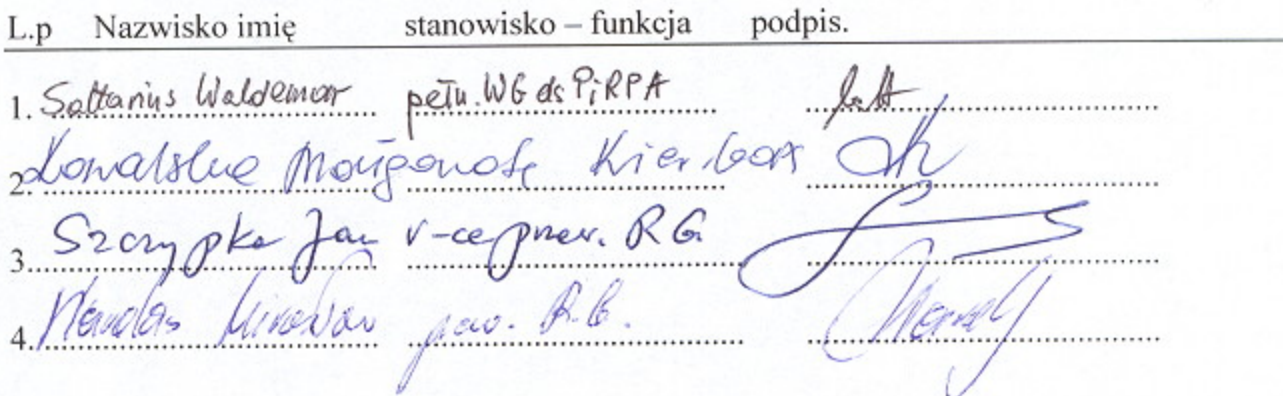 L.p Nazwisko imię stanowisko – funkcja podpis.
1. Sołtarius Waldemar pełn. WG ds PiRPA
2. Kowalska Małgorzata Kier.
3. Szczypka Jan v-ce przew. R G.
4. Mirosław R.G.